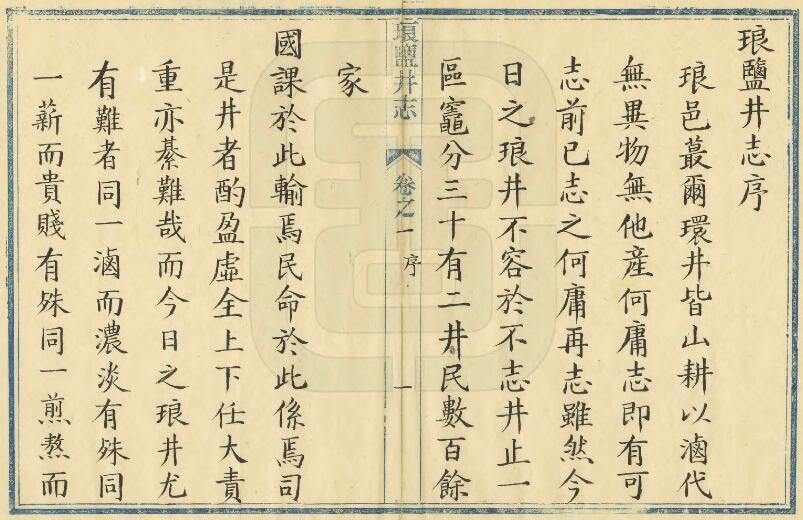 琅鹽井志序
琅邑蕞爾環井皆山耕以滷代
無異物無他産何庸志即有可
志前已志之何庸再志雖然今
日之琅井不容於不志井止一
區竈分三十有二井民數百餘
家
琅鹽井志
卷之一
序
一
國課於此輸焉民命於此係焉司
是井者酌盈虛全上下任大責
重亦綦難哉而今日之琅井尤
有難者同一滷而濃淡有殊同
一薪而貴賤有殊同一煎熬而